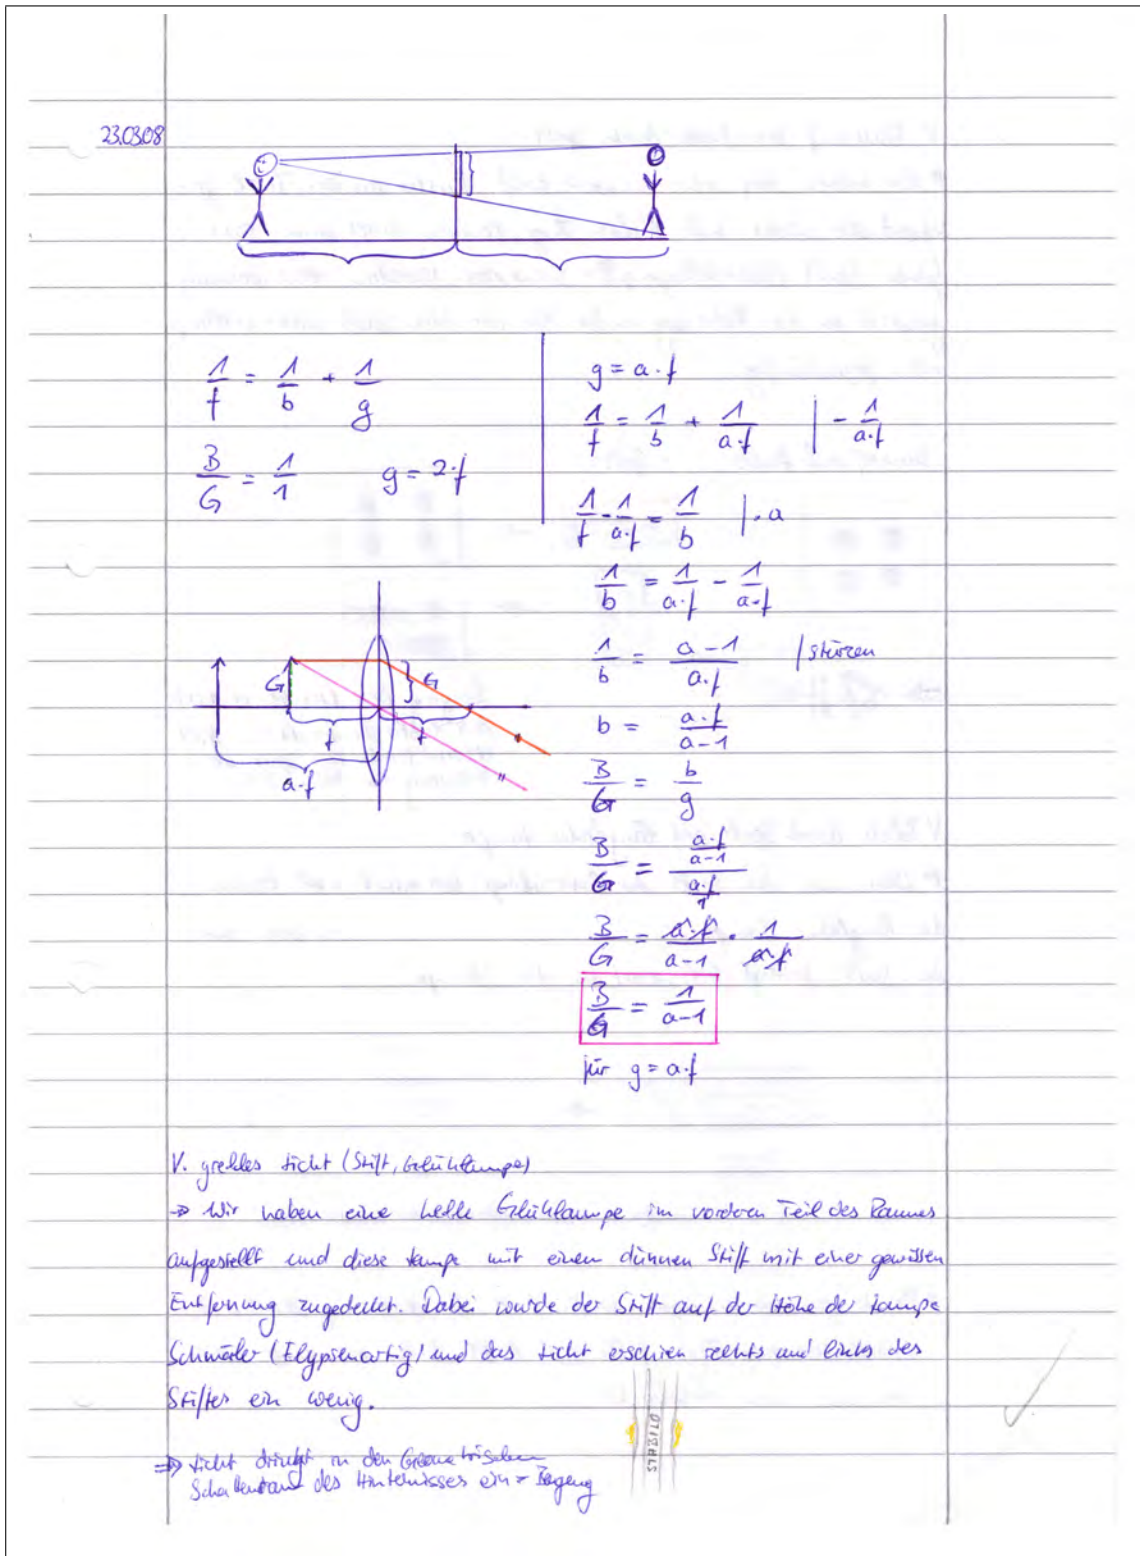 23.03.08
1/f = 1/b + 1/g
B/G = 1/1 g = 2·f
g = a·f
1/f = 1/b + 1/a·f | - 1/a·f
1/f - 1/a·f = 1/b | · a
1/b = 1/a·f - 1/a·f
1/b = a-1/a·f | stürzen
b = a·f/a-1
B/G = b/g
B/G = a·f/a-1 / a·f/1
B/G = a·f/a-1 · 1/a·f
B/G = 1/a-1
für g = a·f
G
G
f
f
a·f
V. grelles Licht (Stift, Glühlampe)
→ Wir haben eine helle Glühlampe im vorderen Teil des Raumes
aufgestellt und diese Lampe mit einen dünnen Stift mit einer gewissen
Entfernung zugedeckt. Dabei wurde der Stift auf der Höhe der Lampe
Schmäler (Elypsenartig) und das Licht erschien rechts und links des
Stiftes ein wenig.
STABILO
⇒ Licht dringt in den Geometrischen
des Hinternisses ein =